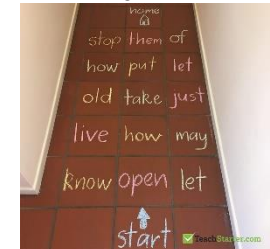 home
stop them of
how put let
old take just
live how may
know open let
start
TeachStarter.com